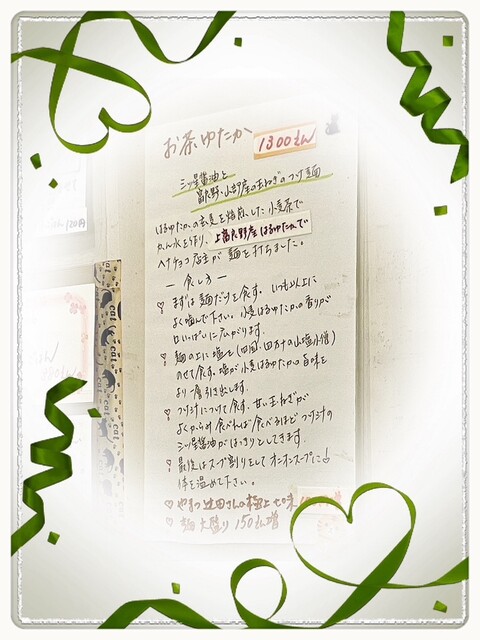 お茶ゆたか 1300えん
三ツ星醤油と
富良野・小部産の玉ねぎのつけ麺
はるゆたかの玄麦を焙煎した小麦茶で
かん水を作り、上富良野産はるゆたかで
ヘナチョコ店主が麺を打ちました。
ー食し方ー
♡まずは麺だけを食す。いつも以上に
よく噛んで下さい。小麦はるゆたかの香りが
口いっぱいに広がります。
♡麺の上に塩を(四国・四万十の山塩小僧)
のせて食す。塩が小麦はるゆたかの旨味を
より一層引き出します。
♡つけ汁につけて食す。甘い玉ねぎが
よくからめ食べれば食べるほどつけ汁の
三ツ星醤油がはっきりとしてきます。
♡最後はスープ割りをしてオニオンスープに
体を温めて下さい。
♡やまつ辻田さんの極上七味
♡麺大盛り 150えん増
cat
cat
cat